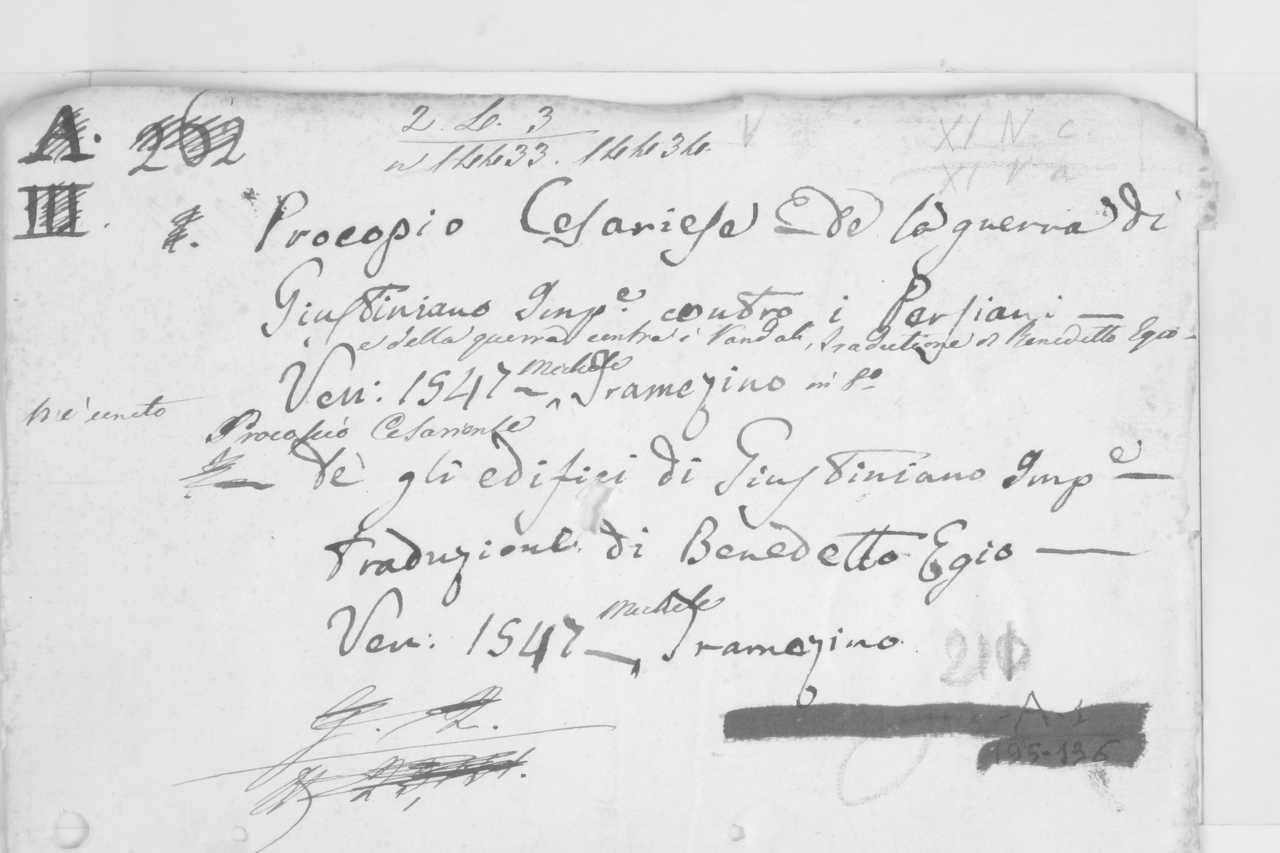 A. 202 2. L. 3 V XI N c.
n 14433. 14434 XI V a
III. Procopio Cesariese De la guerra di
Giustiniano Imp.e contro i Persiani —
e della guerra contra i Vandali, traduzione di Benedetto Egio -
Ven: 1547 — Michele Tramezino in 8o
Procopio Cesariense
— de gli edifici di Giustiniano Imp e —
traduzione di Benedetto Egio —
Ven: 1547 — Michele Tramezino
210
A-1
135-136